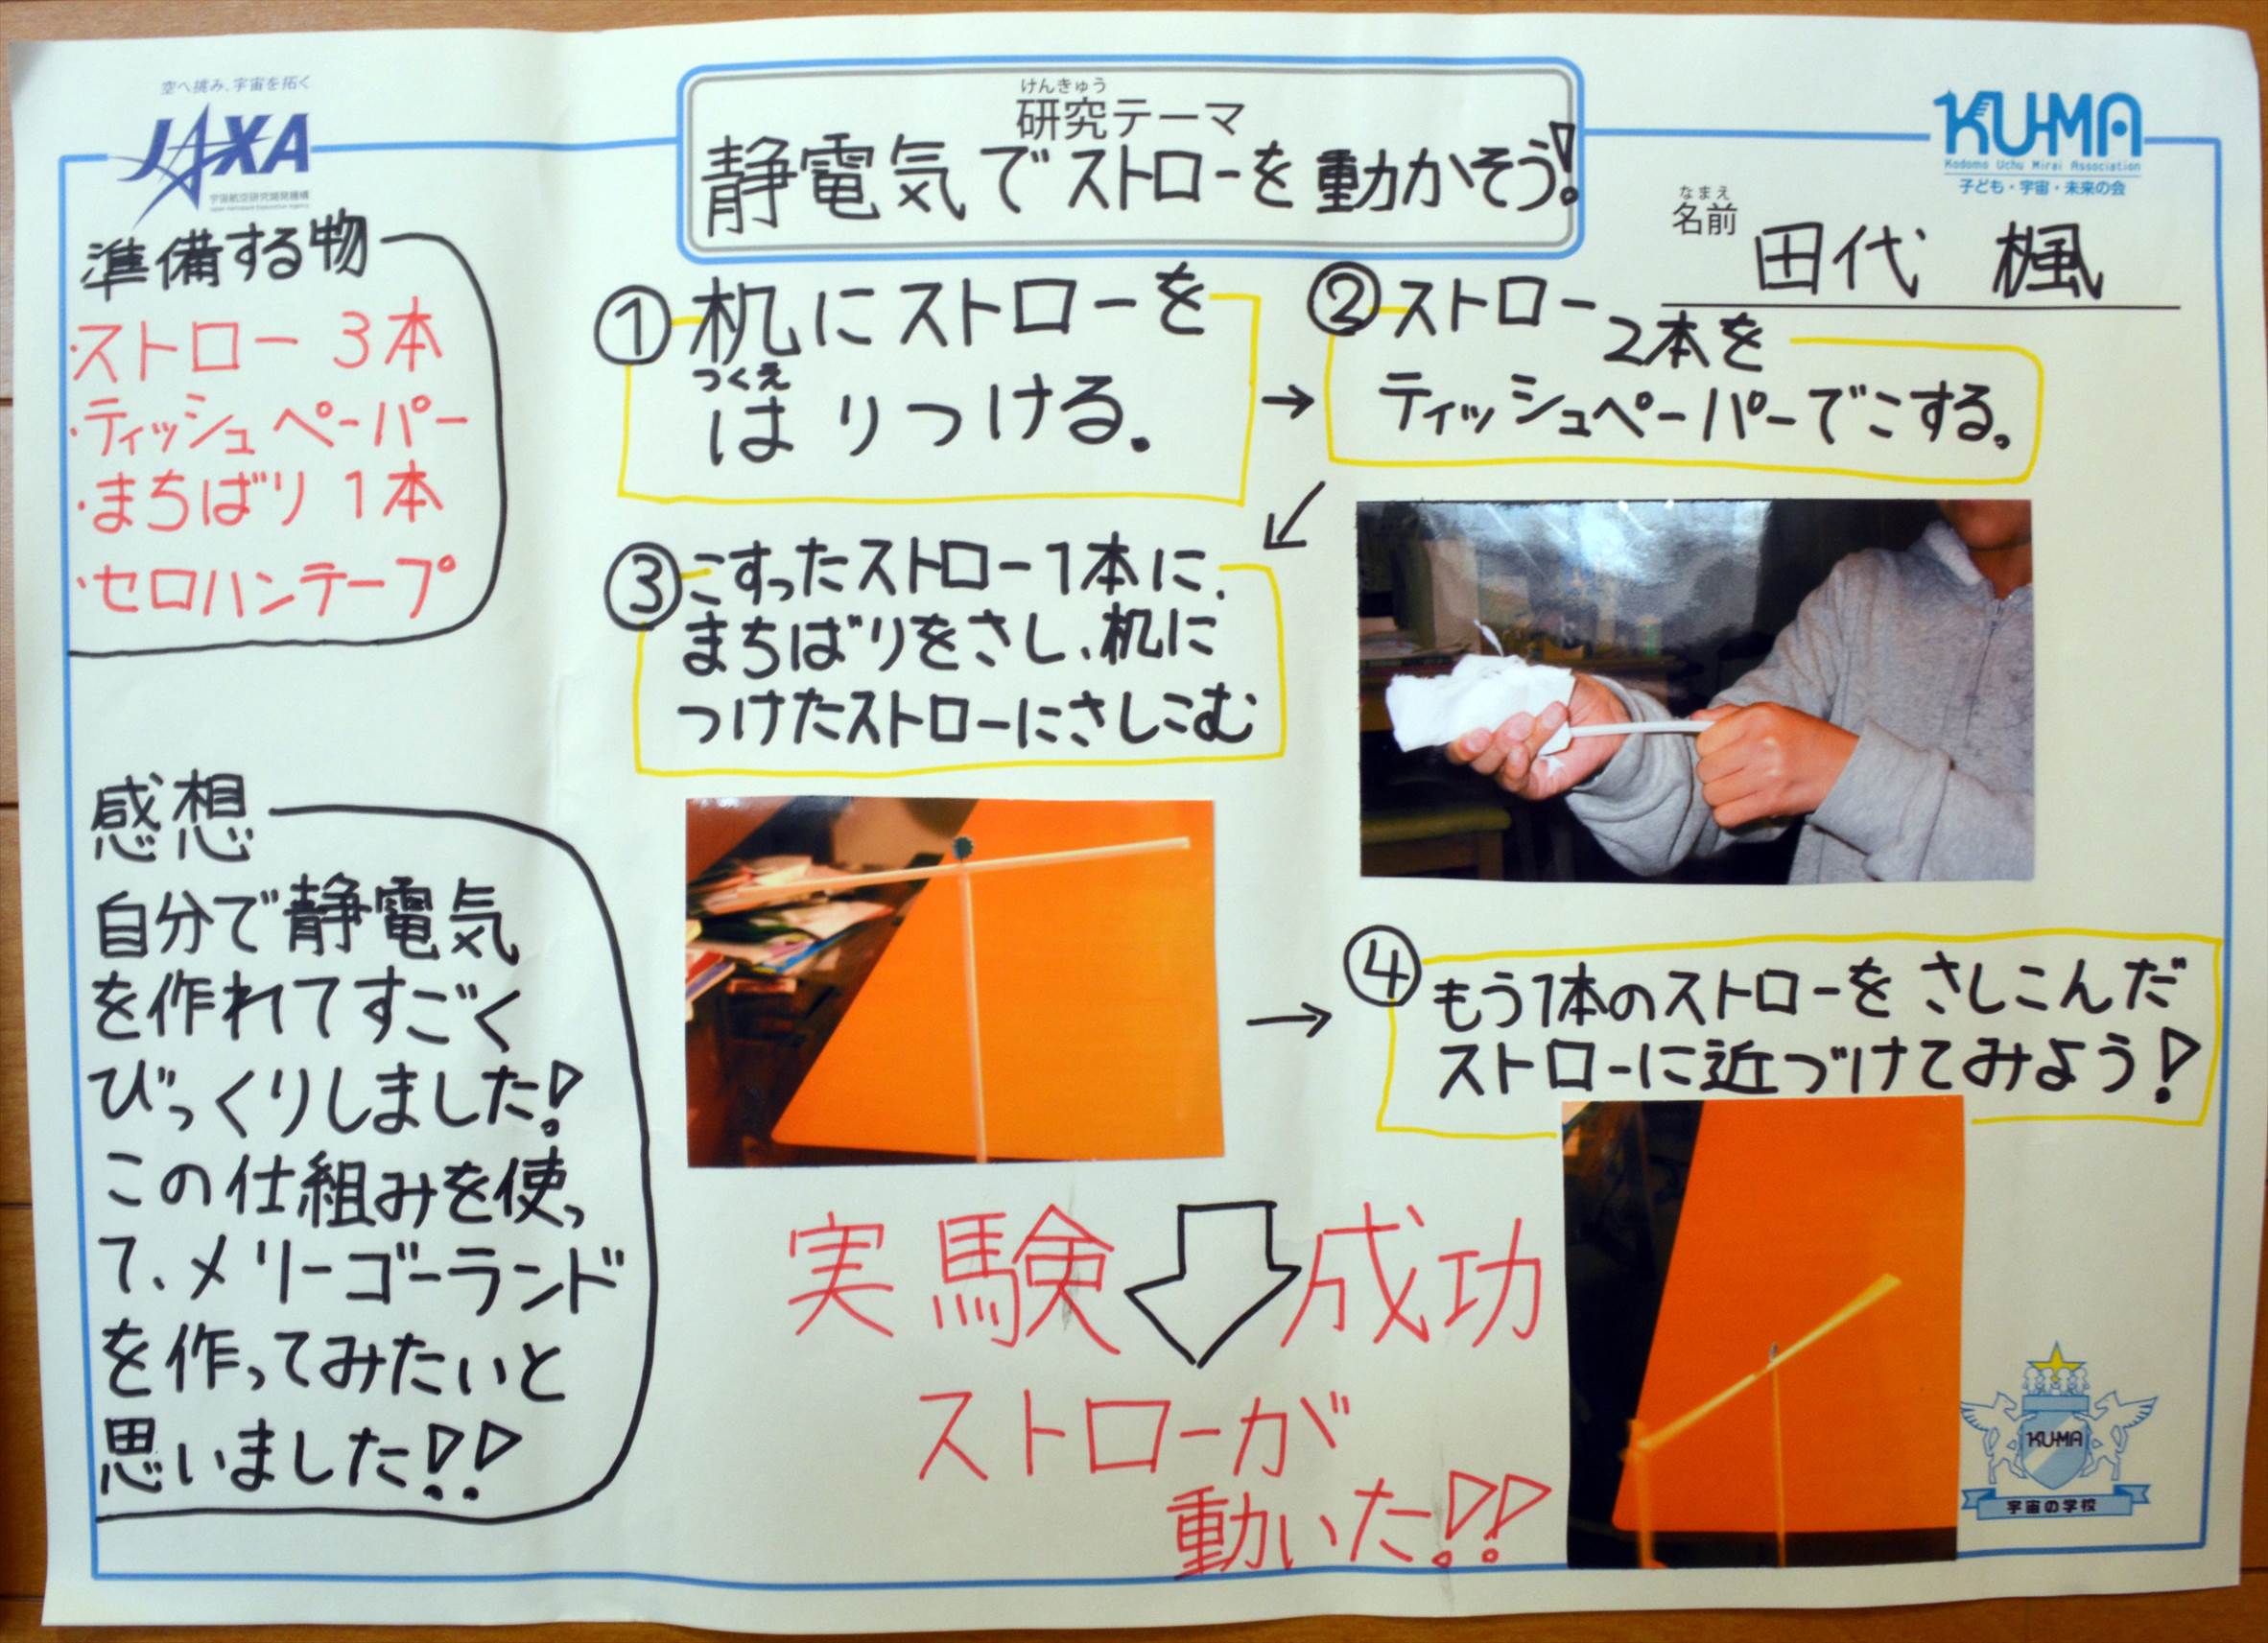 空へ挑み、宇宙を拓く
JAXA
宇宙航空研究開発機構
Japan Aerospace Exploration Agency
けんきゅう
研究テーマ
静電気でストローを動かそう!
KU-MA
Kodomo Uchu Mirai Association
子ども・宇宙・未来の会
なまえ
名前
田代 楓
準備する物
・ストロー 3本
・ティッシュペーパー
・まちばり 1本
・セロハンテープ
①机にストローを
つくえ
はりつける。
→
②ストロー2本を
ティッシュペーパーでこする。
③こすったストロー1本に、
まちばりをさし、机に
つけたストローにさしこむ
→
④もう1本のストローをさしこんだ
ストローに近づけてみよう!
実験成功
ストローが
動いた!!
感想
自分で静電気
を作れてすごく
びっくりしました!
この仕組みを使っ
て、メリーゴーランド
を作ってみたいと
思いました!!
KU-MA
宇宙の学校